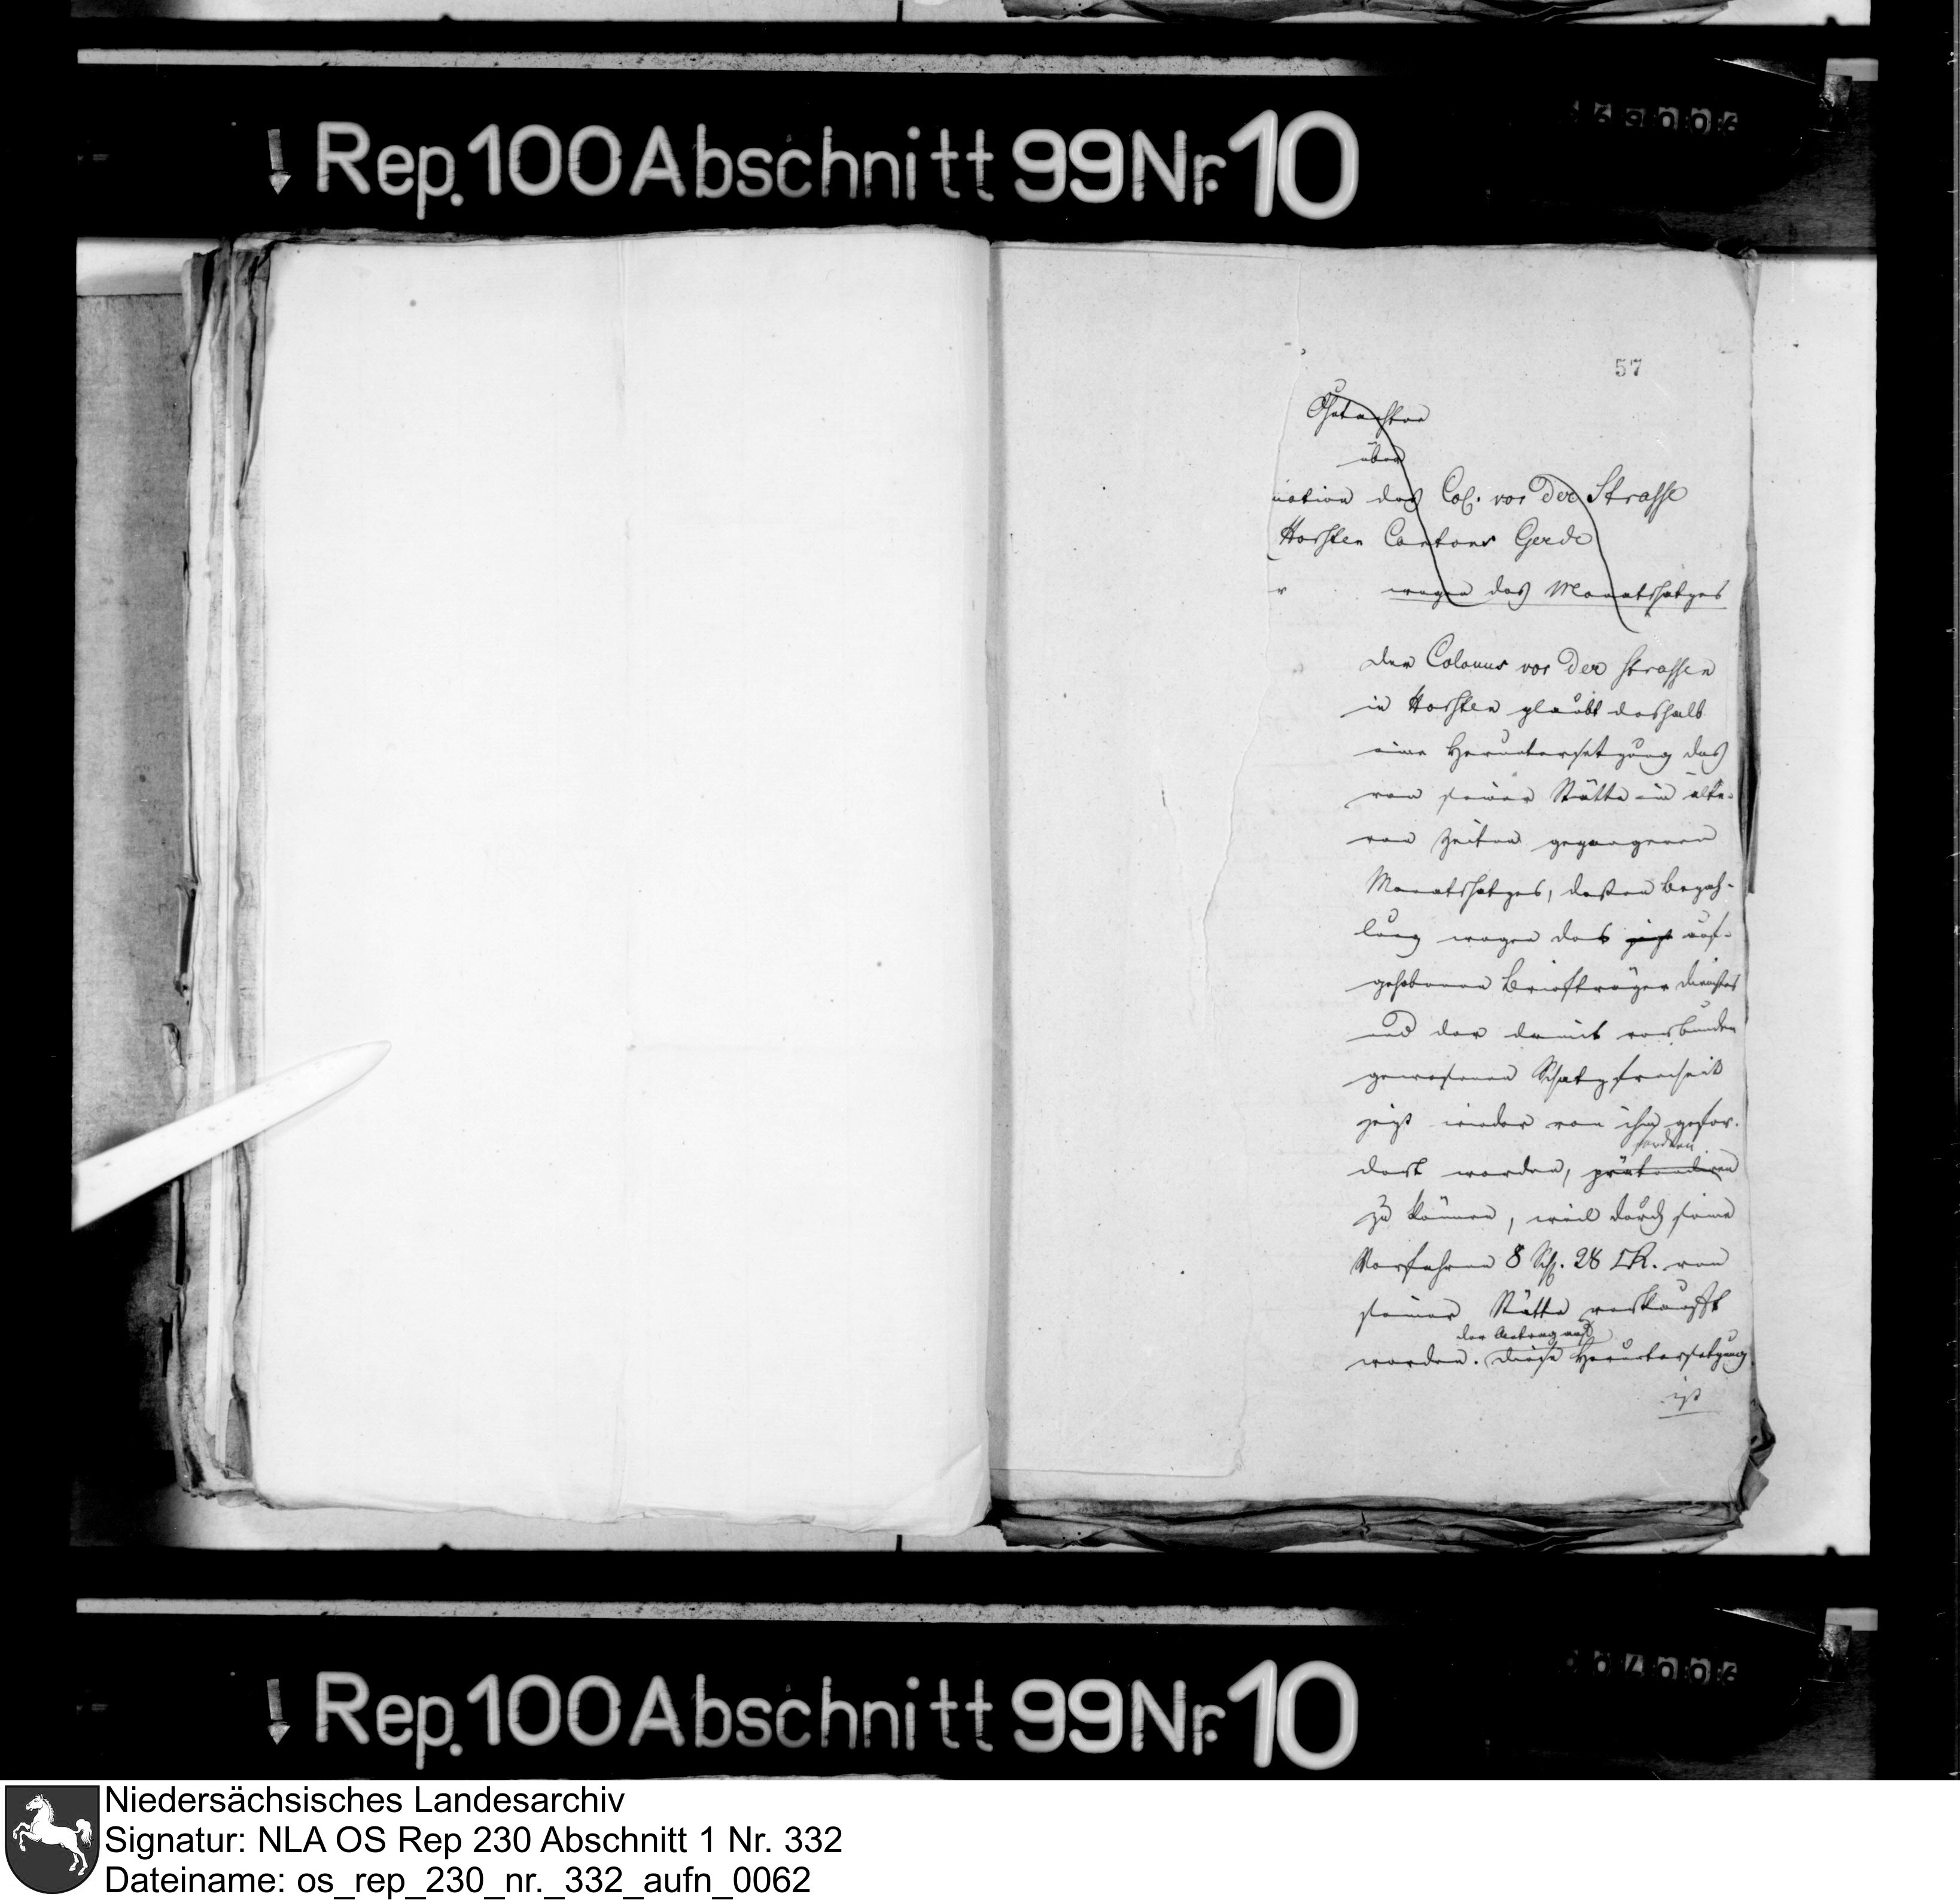 Rep. 100 Abschnitt 99 Nr. 10
57
Gutachten
über
nation des Col. vor der Strasse
Horsten Cantons Gerde
wegen des Monatschatzes
Der Colonus vor der Strassen
in Horsten glaubt deshalb
eine Heruntersetzung des
von seiner Stätte in älte-
ren Zeiten gegangenen
Monatschatzes, deßen Bezah-
lung wegen des jezt auf-
gehobenen Briefträger Dienstes
und der damit verbunden
gewesenen Schatzfreiheit
jezt wieder von ihm gefor-
fordern
dert worden, prätendiren
zu können, weil durch seine
Vorfahren 8 Sch. 28 □R. von
seiner Stätte verkauft
der Antrag auf
worden. Diese Heruntersetzung
ist
Rep. 100 Abschnitt 99 Nr. 10
Niedersächsisches Landesarchiv
Signatur: NLA OS Rep 230 Abschnitt 1 Nr. 332
Dateiname: os_rep_230_nr._332_aufn_0062